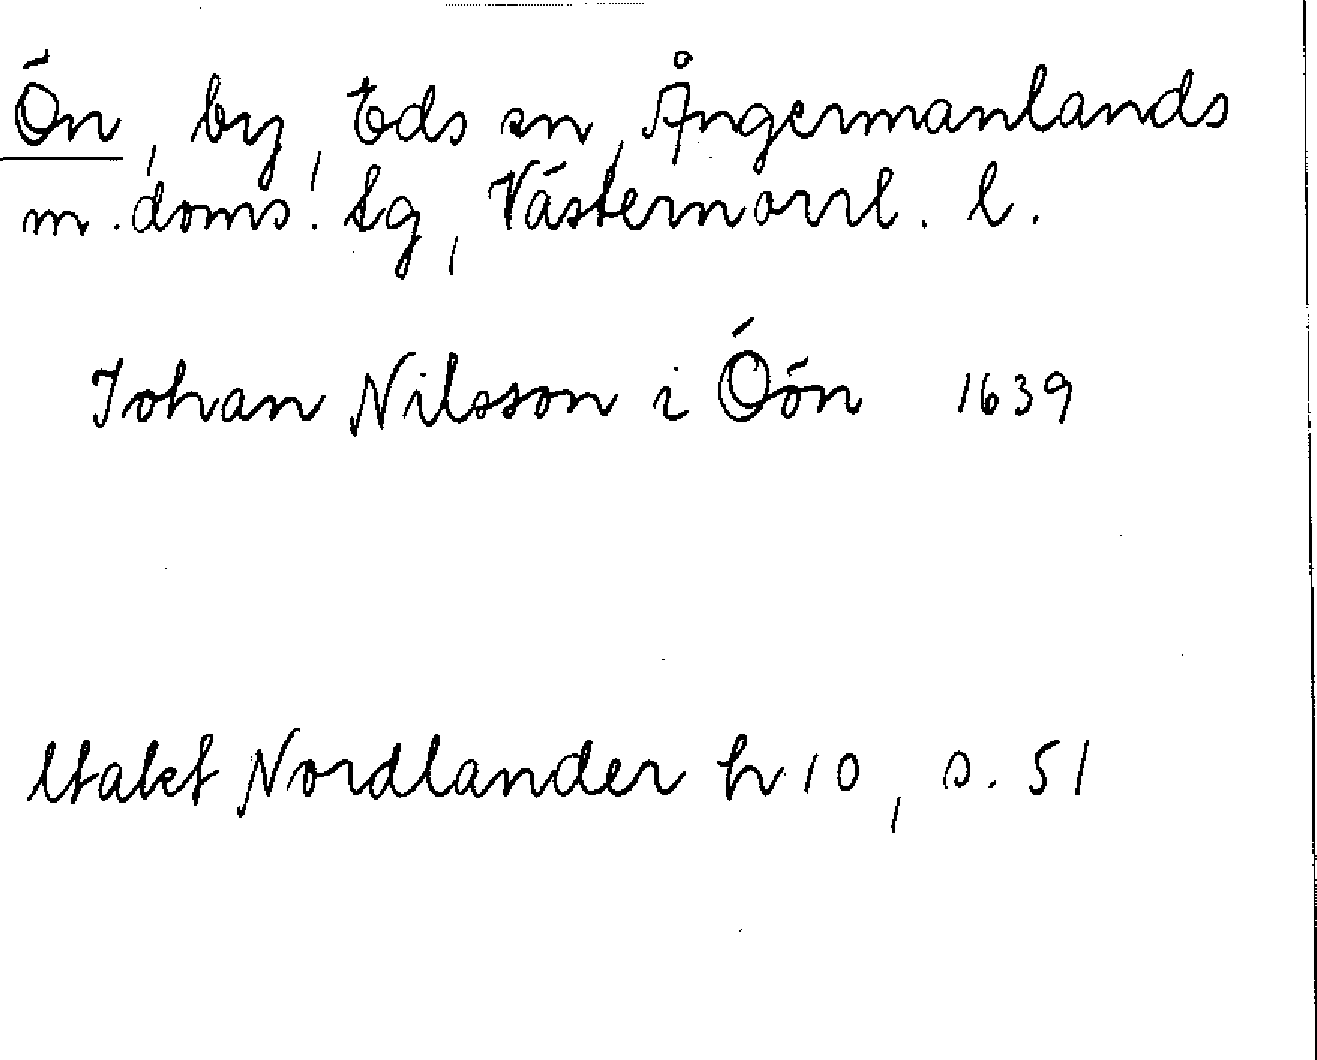 Ön, by, Eds sn, Ångermanlands
m. doms. lg, Västernorrl. l.
Johan Nilsson i Öön 1639
Utakt Nordlander h 10, s. 51